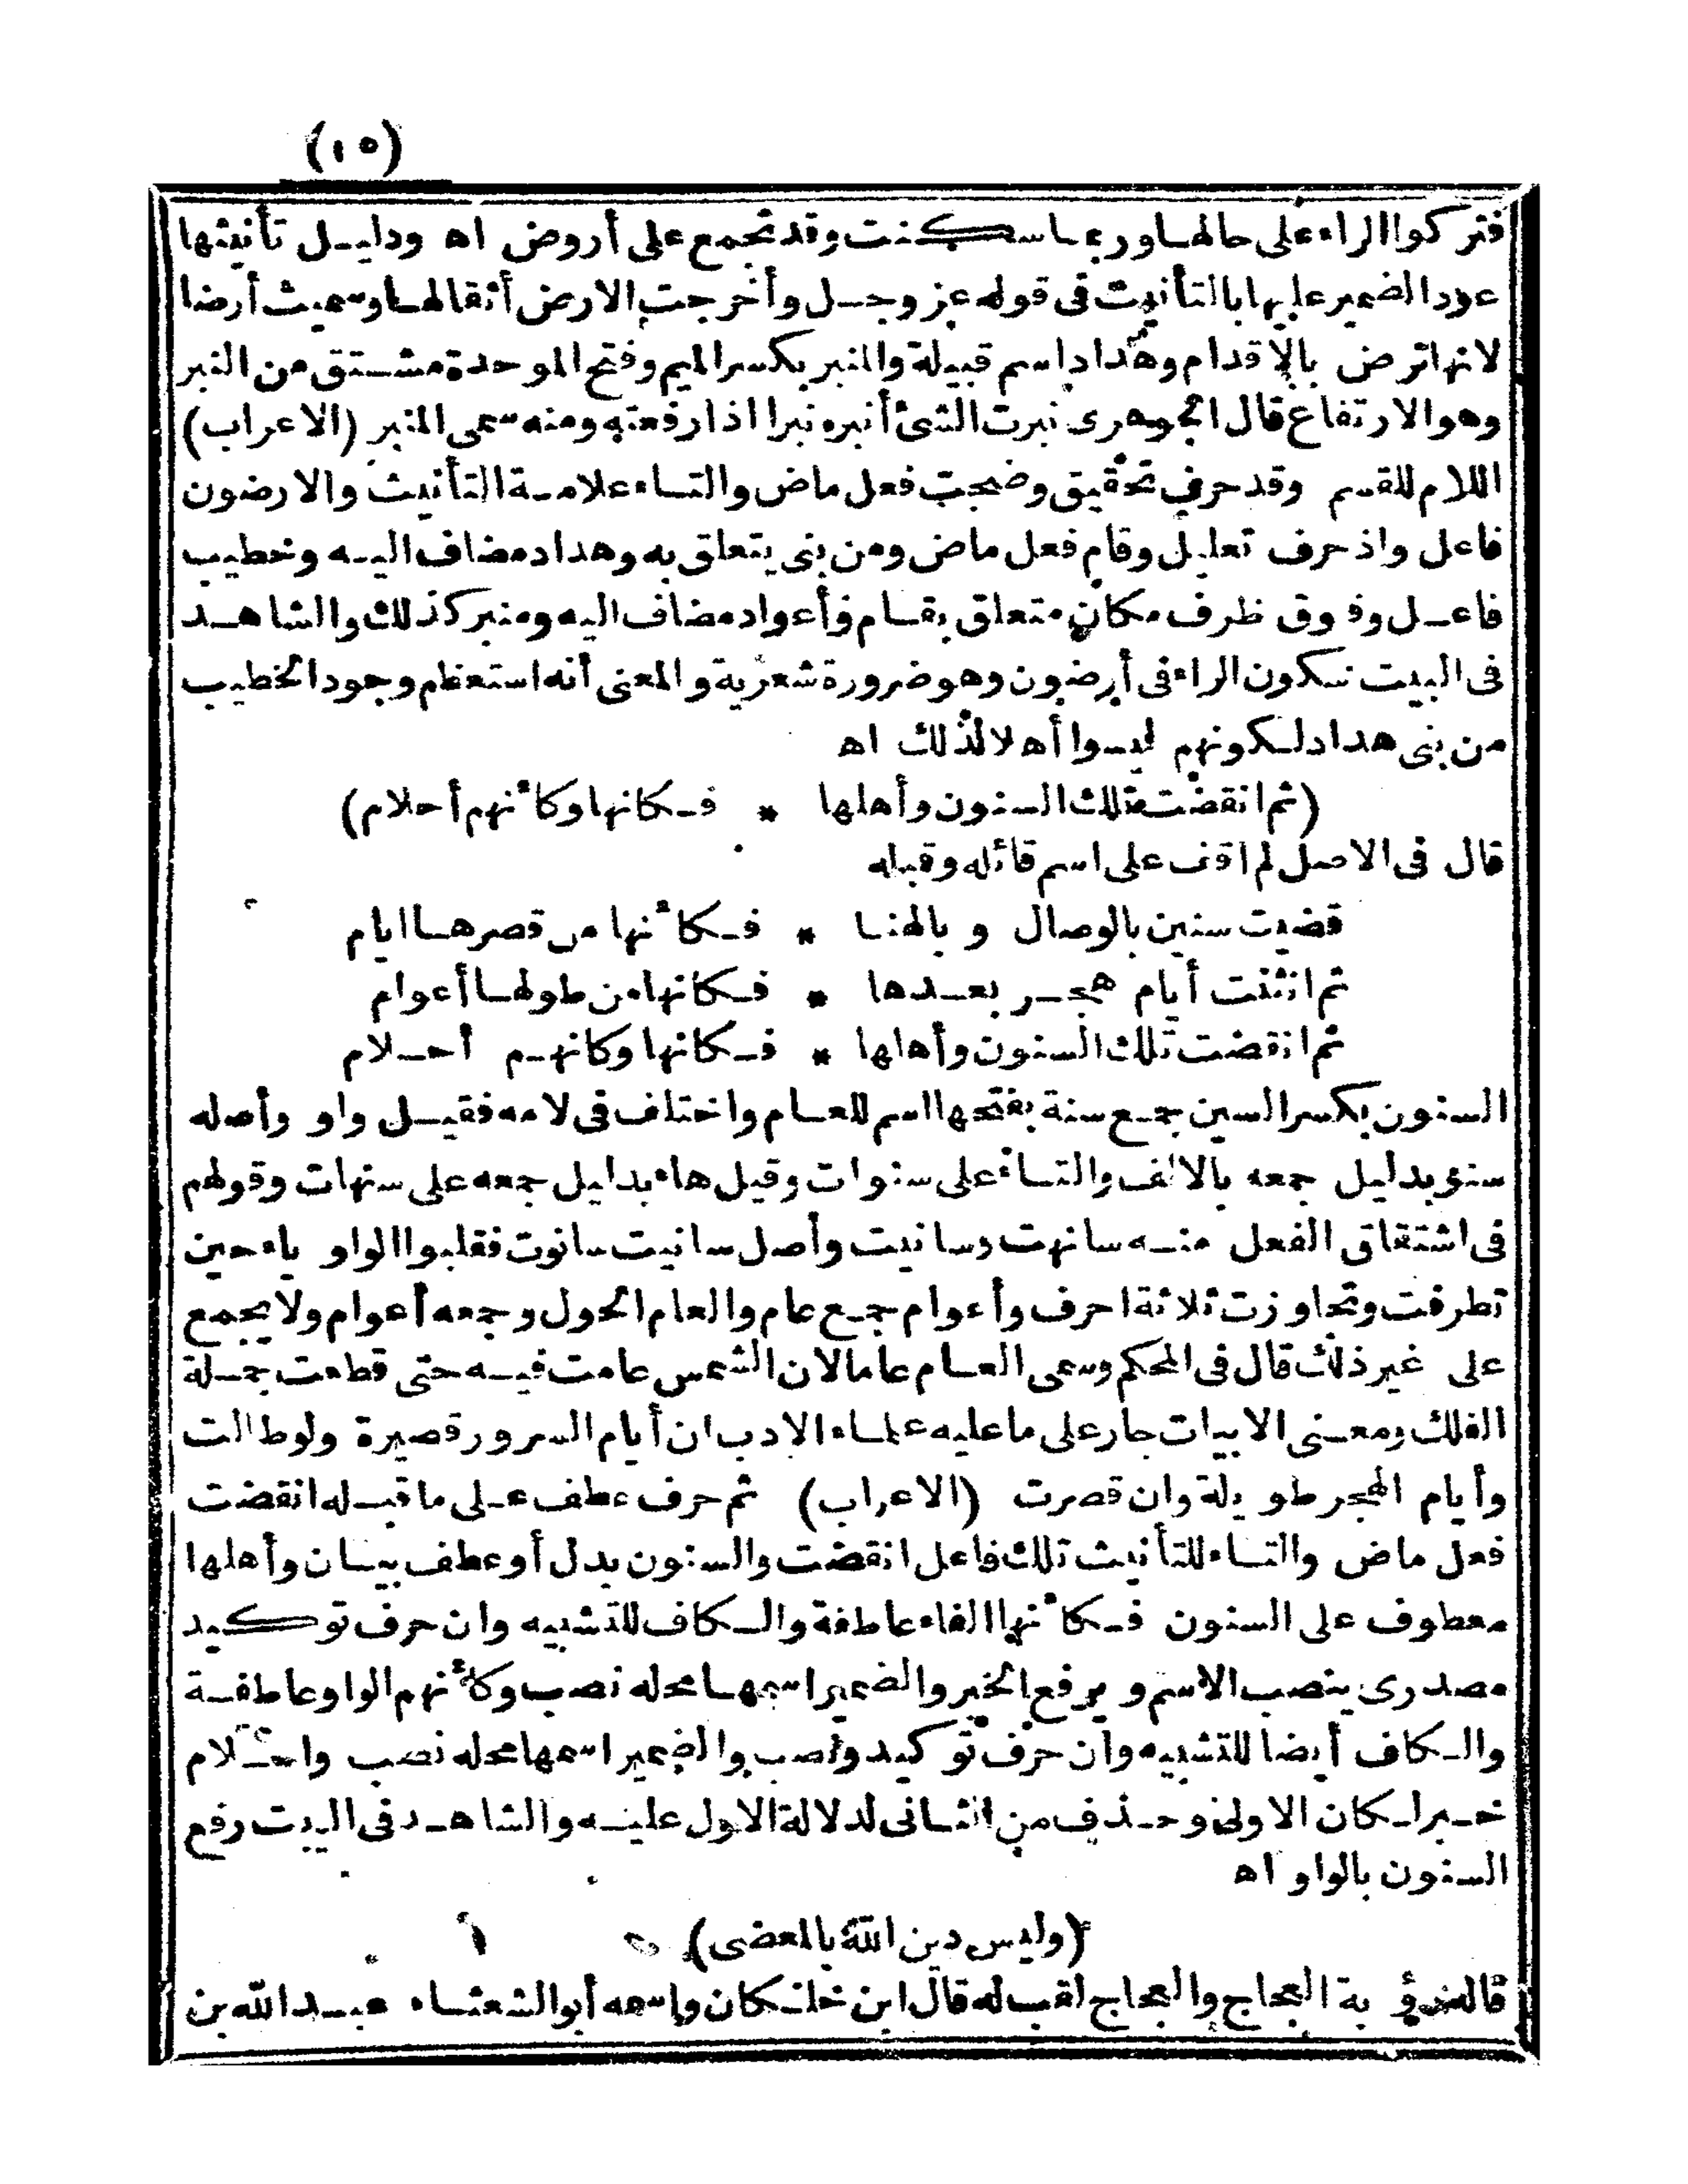 (١٥)
فتركوا الراء على حالها وربما سكنت وقد تجمع على أروض اه ودليل تأنيثها
عود الضمير عليها بالتأنيث فى قوله عز وجل وأخرجت الارض أثقالها وسميت أرضا
لانها ترض بالاقدام وهداد اسم قبيلة والمنبر بكسر الميم وفتح الموحدة مشتق من النبر
وهو الارتفاع قال الجوهرى نبرت الشئ أنبره نبرا اذا رفعته ومنه سمى المنبر (الاعراب)
اللام للقسم وقد حرف تحقيق وضجت فعل ماض والتاء علامة التأنيث والارضون
فاعل واذ حرف تعليل وقام فعل ماض ومن بنى يتعلق به وهداد مضاف اليه وخطيب
فاعل وفوق ظرف مكان متعلق بقام وأعواد مضاف اليه ومنبر كذلك والشاهد
فى البيت سكون الراء فى أرضون وهو ضرورة شعرية والمعنى أنه استعظم وجود الخطيب
من بنى هداد لكونهم ليسوا أهلا لذلك اه
(ثم انقضت تلك السنون وأهلها * فكانها وكأنهم أحلام)
قال فى الاصل لم اقف على اسم قائله وقبله
قضيت سنين بالوصال و بالهنا * فكأنها من قصرها ايام
ثم انثنت أيام هجر بعدها * فكانها من طولها أعوام
ثم انقضت تلك السنون وأهلها * فكانها وكانهم أحلام
السنون بكسر السين جمع سنة بفتحها اسم للعام واختلف فى لامه فقيل واو وأصله
سنو بدليل جمعه بالالف والتاء على سنوات وقيل هاء بدليل جمعه على سنهات وقولهم
فى اشتقاق الفعل منه سانهت وسانيت وأصل سانيت سانوت فقلبوا الواو ياء حين
تطرفت وتجاوزت ثلاثة احرف وأعوام جمع عام والعام الحول وجمعه أعوام ولا يجمع
على غير ذلك قال فى المحكم وسمى العام عاما لان الشمس عامت فيه حتى قطعت جملة
الفلك ومعنى الابيات جار على ما عليه علماء الادب ان أيام السرور قصيرة ولو طالت
وأيام الهجر طويلة وان قصرت (الاعراب) ثم حرف عطف على ما قبله انقضت
فعل ماض والتاء للتأنيث تلك فاعل انقضت والسنون بدل أو عطف بيان وأهلها
معطوف على السنون فكأنها الفاء عاطفة والكاف للتشبيه وان حرف توكيد
مصدرى ينصب الاسم و يرفع الخبر والضمير اسمها محله نصب وكأنهم الواو عاطفة
والكاف أيضا للتشبيه وان حرف توكيد ونصب والضمير اسمها محله نصب واحلام
خبر لكان الاولى وحذف من الثانى لدلالة الاول عليه والشاهد فى البيت رفع
السنون بالواو اه
(وليس دين الله بالمعضى)
قاله رؤبة العجاج والعجاج لقب له قال ابن خلكان واسمه أبو الشعثاء عبد الله بن